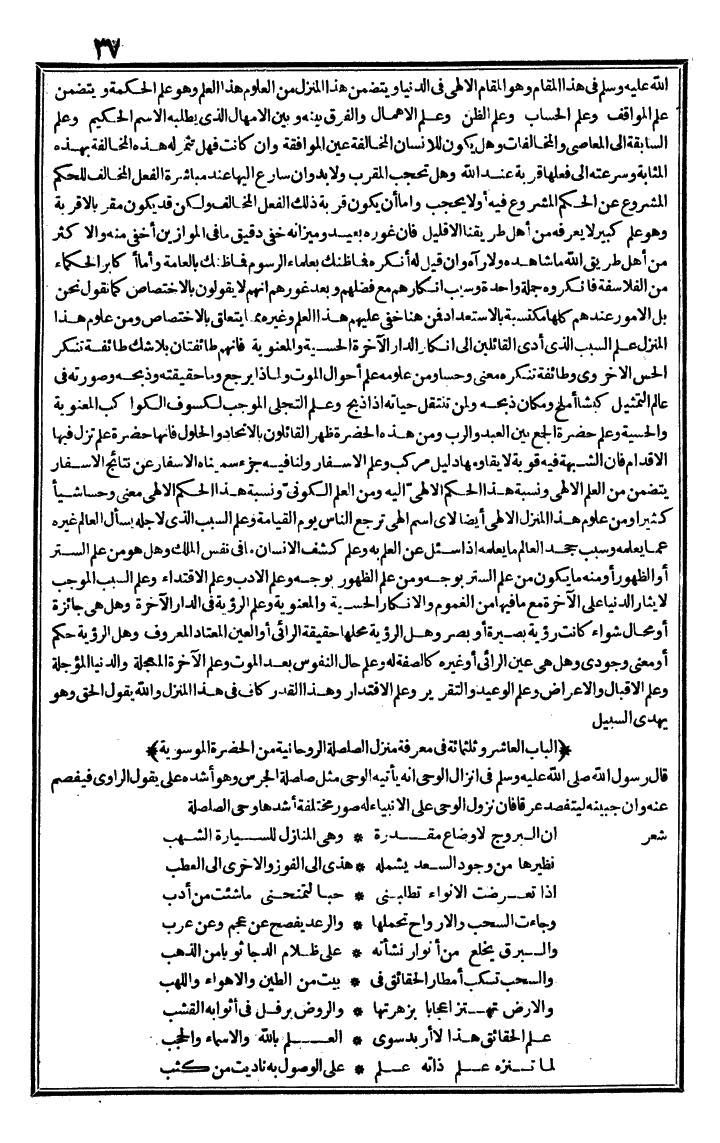 ٣٧
الله عليه وسلم فى هذا المقام وهو المقام الالهى فى الدنيا ويتضمن هذا المنزل من العلوم هذا العلم وهو علم الحكمة ويتضمن
علم المواقف وعلم الحساب وعلم الظن وعلم الاهمال والفرق بينه وبين الامهال الذى يطلبه الاسم الحكيم وعلم
السابقة الى المعاصى والمخالفات وهل يكون للانسان المخالفة عين الموافقة وان كانت فهل تثمر له هذه المخالفة بهذه
المثابة وسرعته الى فعلها قربة عند الله وهل تحجب المقرب ولا بد وان سارع اليها عند مباشرة الفعل المخالف للحكم
المشروع عن الحكم المشروع فيه أولا يحجب واما أن يكون قربة ذلك الفعل المخالف ولكن قد يكون مقر بالاقربة
وهو علم كبير لا يعرفه من أهل طريقنا الا قليل فان غوره بعيد وميزانه خفى دقيق مافى الموازين أخفى منه والا كثر
من أهل طريق الله ماشاهده ولا رآه وان قيل له أنكره فماظنك بعلماء الرسوم فماظنك بالعامة وأماأ كابر الحكماء
من الفلاسفة فانكروه جملة واحدة وسبب انكارهم مع فضلهم وبعد غورهم انهم لا يقولون بالاختصاص كما نقول نحن
بل الامور عندهم كلها مكتسبة بالاستعداد فمن هنا خفى عليهم هذا العلم وغيره مما يتعلق بالاختصاص ومن علوم هذا
المنزل علم السبب الذى أدى القائلين الى انكار الدار الآخرة الحسية والمعنوية فانهم طائفتان بلاشك طائفة تنكر
الحس الاخروى وطائفة تنكره معنى وحسا ومن علومه علم أحوال الموت ولماذا يرجع وما حقيقته وذبحه وصورته فى
عالم التمثيل كبشا أملح ومكان ذبحه ولمن تنتقل حياته اذا ذبح وعلم التجلى الموجب لكسوف الكوا كب المعنوية
والحسية وعلم حضرة الجمع بين العبد والرب ومن هذه الحضرة ظهر القائلون بالاتحاد والحلول فانها حضرة علم تزل فيها
الاقدام فان الشبهة فيه قوية لا يقاومها دليل مركب وعلم الاسفار ولنا فيه جزء سميناه الاسفار عن نتائج الاسفار
يتضمن من العلم الالهى ونسبة هذا الحكم الالهى اليه ومن العلم الكونى ونسبة هذا الحكم الالهى معنى وحسا شيأ
كثيرا ومن علوم هذا المنزل الالهى أيضا لاى اسم الهى ترجع الناس يوم القيامة وعلم السبب الذى لاجله يسأل العالم غيره
عما يعلمه وسبب جحد العالم ما يعلمه اذا سئل عن العلم به وعلم كشف الانسان مافى نفس الملك وهل هو من علم الستر
أو الظهور أو منه ما يكون من علم الستر بوجه ومن علم الظهور بوجه وعلم الادب وعلم الاقتداء وعلم السبب الموجب
لايثار الدنيا على الآخرة مع مافيها من الغموم والانكار الحسية والمعنوية وعلم الرؤية فى الدار الآخرة وهل هى جائزة
أو محال سواء كانت رؤية بصيرة أو بصر وهل الرؤية محلها حقيقة الرائى أو العين المعتاد المعروف وهل الرؤية حكم
أو معنى وجودى وهل هى عين الرائى أو غيره كالصفة له وعلم حال النفوس بعد الموت وعلم الآخرة المعجلة والدنيا المؤجلة
وعلم الاقبال والاعراض وعلم الوعيد والتقرير وعلم الاقتدار وهذا القدر كاف فى هذا المنزل والله يقول الحق وهو
يهدى السبيل
﴿الباب العاشر وثلثمائة فى معرفة منزل الصلصلة الروحانية من الحضرة الموسوية﴾
قال رسول الله صلى الله عليه وسلم فى انزال الوحى انه يأتيه الوحى مثل صلصلة الجرس وهو أشده على يقول الراوى فيفصم
عنه وان جبينه ليتفصد عرقا فان نزول الوحى على الانبياء له صور مختلفة أشدها وحى الصلصلة
شعر ان البروج لاوضاع مقدرة * وهى المنازل للسيارة الشهب
نظيرها من وجود السعد يشمله * هذى الى الفوز والاخرى الى العطب
اذا تعرضت الانواء تطلبنى * حبا لتمنحنى ماشئت من أدب
وجاءت السحب والارواح تحملها * والرعد يفصح عن عجم وعن عرب
والبرق يخلع من أنوار نشأته * على ظلام الدجا ثوبا من الذهب
والسحب تسكب أمطار الحقائق فى * بيت من الطين والاهواء واللهب
والارض تهتز اعجابا بزهرتها * والروض يرفل فى أثوابه القشب
علم الحقائق هذا لا أريد سوى * العلم بالله والاسماء والحجب
لما تنزه علم ذاته علم * على الوصول به ناديت من كثب